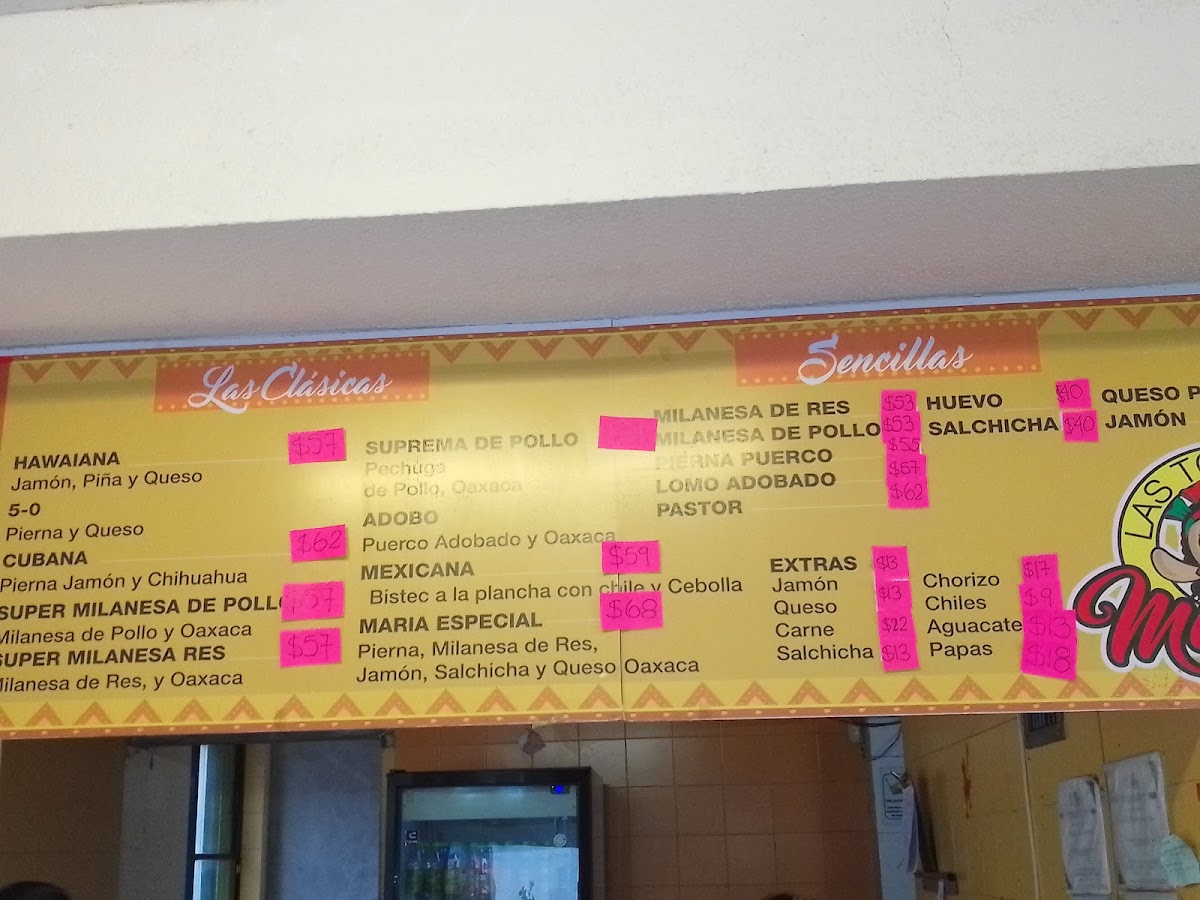 Las Clásicas
HAWAIANA $57
Jamón, Piña y Queso
5-0
Pierna y Queso
CUBANA $62
Pierna Jamón y Chihuahua
SUPER MILANESA DE POLLO $57
Milanesa de Pollo y Oaxaca
SUPER MILANESA RES $57
Milanesa de Res, y Oaxaca
SUPREMA DE POLLO
Pechuga
de Pollo, Oaxaca
ADOBO
Puerco Adobado y Oaxaca
MEXICANA $59
Bistec a la plancha con chile y Cebolla
MARIA ESPECIAL $68
Pierna, Milanesa de Res,
Jamón, Salchicha y Queso Oaxaca
Sencillas
MILANESA DE RES $53
MILANESA DE POLLO $53
PIERNA PUERCO $55
LOMO ADOBADO $57
PASTOR $62
HUEVO $40
SALCHICHA $40
QUESO P
JAMÓN
EXTRAS
Jamón $13
Queso $13
Carne $22
Salchicha $13
Chorizo $17
Chiles $9
Aguacate $13
Papas $18
LAS TO
M